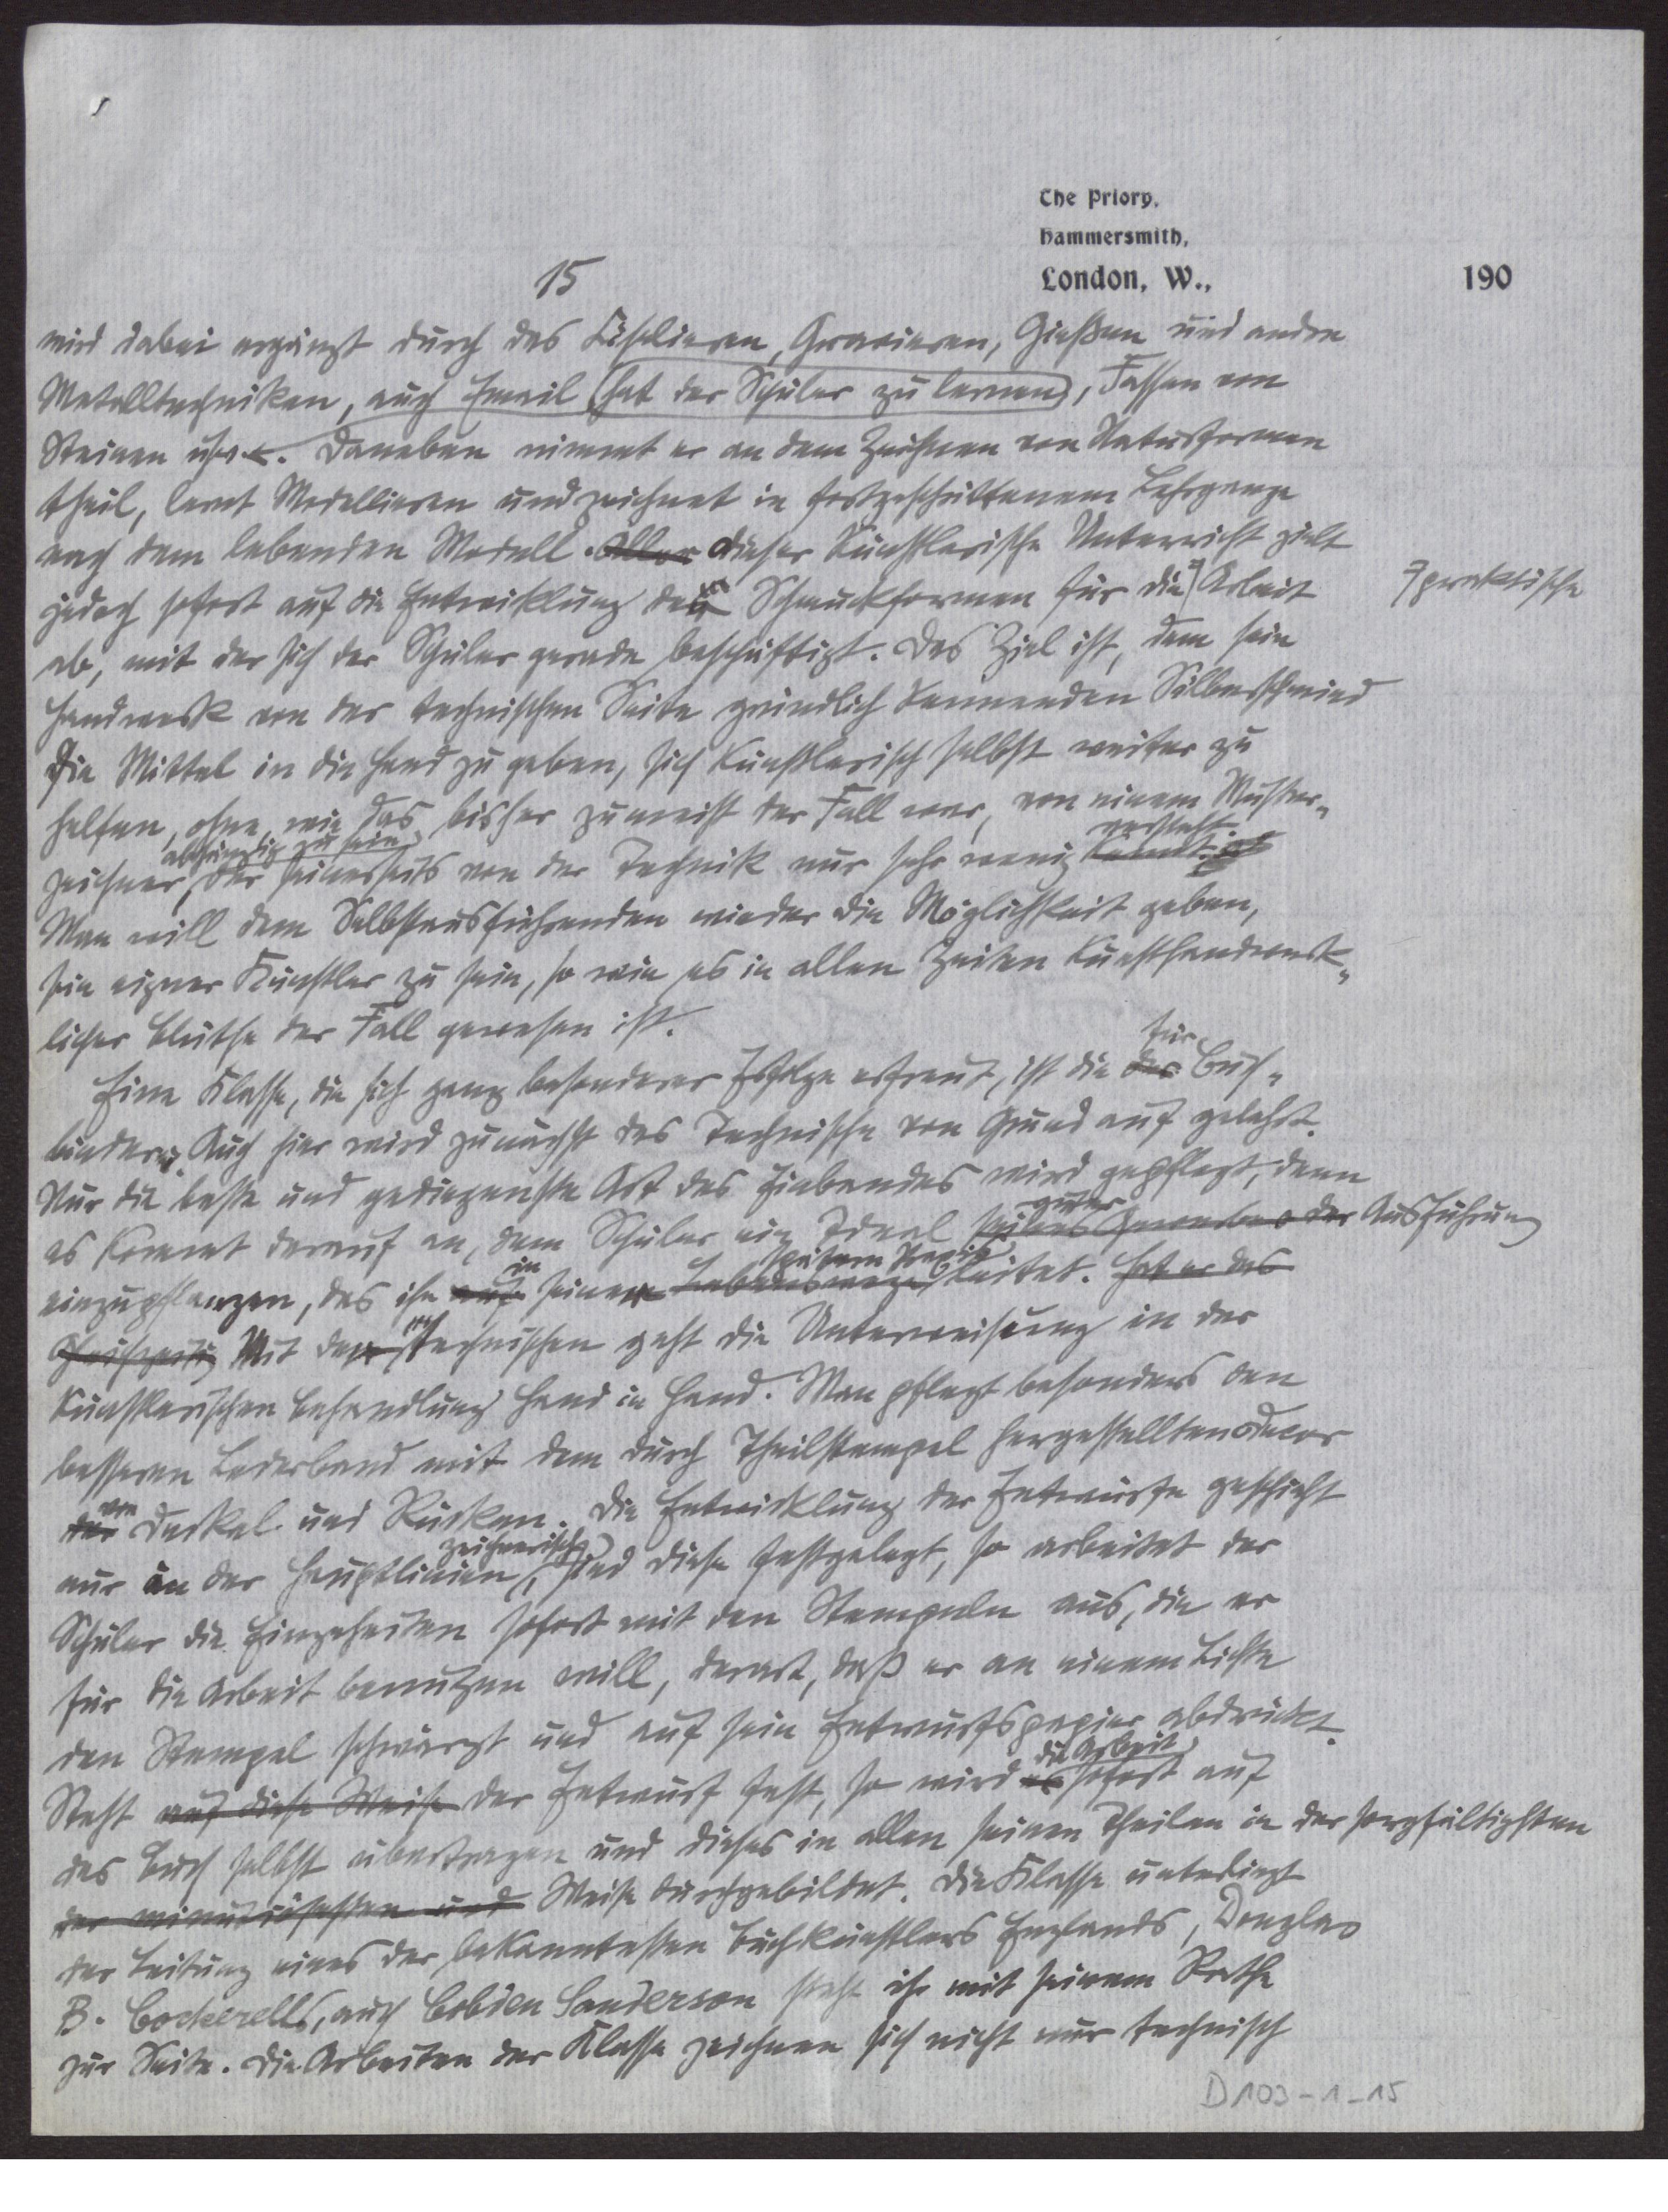 The Priory,
Hammersmith,
London, W., 190
15
wird dabei ergänzt durch das Ciselieren, Gravieren, Gießen und andre
Metalltechniken, auch Email (hat der Schüler zu lernen), Fassen von
Steinen usw. Daneben nimmt er an dem Zeichnen von Naturformen
theil, lernt Modellieren und zeichnet in fortgeschrittenem Lehrgange
nach dem lebenden Modell. Aller dieser künstlerische Unterricht zielt
jedoch sofort auf die Entwicklung der Schmuckformen für die Arbeit praktische
ab, mit der sich der Schüler gerade beschäftigt. Das Ziel ist, dem sein
Handwerk von der technischen Seite gründlich kennenden Silberschmied
die Mittel in die Hand zu geben, sich künstlerisch selbst weiter zu
helfen, ohne, wie das bisher zumeist der Fall war, von einem Muster-
abhängig zu sein, versteht.
zeichner, der seinerseits von der Technik nur sehr wenig kennt
Man will dem Selbstausführenden wieder die Möglichkeit geben,
sein eigner Künstler zu sein, so wie es in allen Zeiten kunsthandwerk-
licher Blüthe der Fall gewesen ist.
für
Eine Klasse, die sich ganz besonderer Erfolge erfreut, ist die der Buch-
binder. Auch hier wird zunächst das Technische von Grund auf gelehrt.
Nur die beste und gediegenste Art des Einbandes wird gepflegt, denn
guter
es kommt darauf an, dem Schüler ein Ideal seines Gewerbes der Ausführung
in spätern Praxis
einzupflanzen, das ihn auf seiner Lebenswege leitet. Hat er das
Gleichzeitig Mit dem Technischen geht die Unterweisung in der
künstlerischen Behandlung Hand in Hand. Man pflegt besonders den
besseren Lederband mit dem durch Theilstempel hergestellten Decor
von
der Deckel und Rücken. Die Entwicklung der Entwürfe geschieht
zeichnerisch
nur in der Hauptlinien, sind diese festgelegt, so arbeitet der
Schüler die Einzelheiten sofort mit den Stempeln aus, die er
für die Arbeit benutzen will, derart, daß er an einem Lichte
den Stempel schwärzt und auf sein Entwurfspapier abdrückt.
die Arbeit
Steht auf diese Weise der Entwurf fest, so wird es sofort auf
das Buch selbst übertragen und dieses in allen seinen Theilen in der sorgfältigsten
der minutiösesten und Weise durchgebildet. Die Klasse unterliegt
der Leitung eines der bekanntesten Buchkünstlers Englands, Douglas
B. Cockerells, auch Cobden Sanderson steht ihr mit seinem Rathe
zur Seite. Die Arbeiten der Klasse zeichnen sich nicht nur technisch
D103-1-15